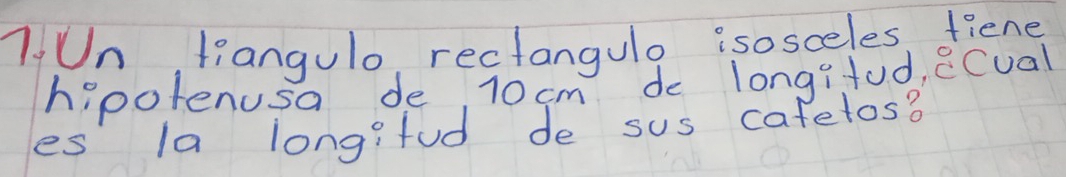 1. Un tiangulo rectangulo isosceles tiene
hipotenusa de 10 cm de longitud, ¿Cual
es la longitud de sus catetos?